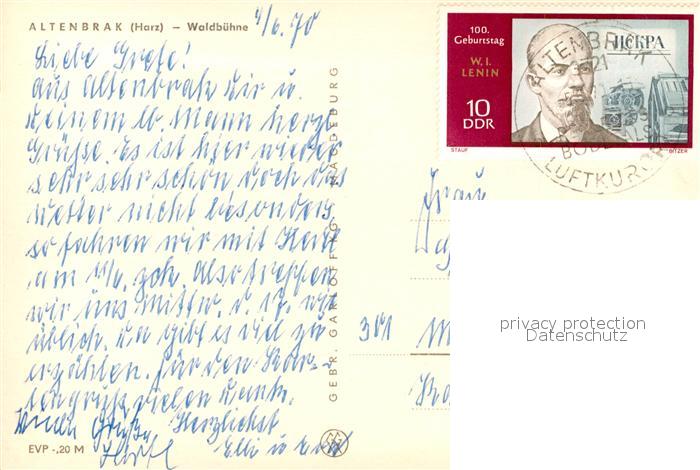 ALTENBRAK (Harz) – Waldbühne
4/6.70
Liebe Grete!
Aus Altenbrak Dir u.
Deinem lb. Mann herzl.
Grüße. Es ist hier wieder
sehr sehr schön doch das
Wetter nicht besonders,
so fahren wir mit
am zch. Also treffen
wir uns Mittw. d. 17. wie
üblich. Da gibt es viel zu
erzählen. Für den Kar-
tengruß vielen Dank.
Herzlichst
Grüße
Elli u
EVP -,20 M
GEBR. GARLOFF KG, MAGDEBURG
100.
Geburtstag
W. I.
LENIN
10
DDR
ИСКРА
STAUF
BITZER
ALTENBRAK
21
LUFTKURORT
Frau
301
privacy protection
Datenschutz